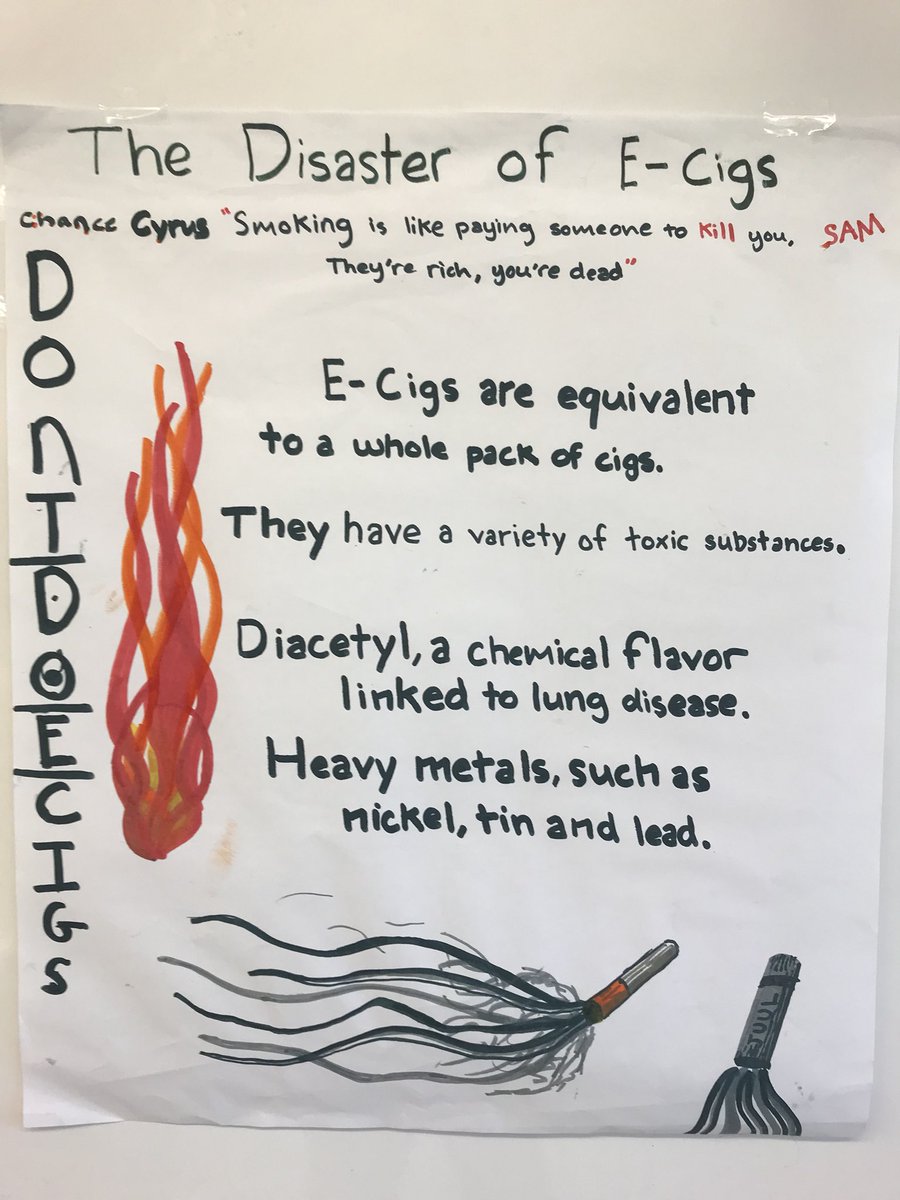 The Disaster of E-Cigs
Chance Cyrus "Smoking is like paying someone to Kill you, SAM
They're rich, you're dead"
DonT DO ECIGS
E-Cigs are equivalent
to a whole pack of cigs.
They have a variety of toxic substances.
Diacetyl, a chemical flavor
linked to lung disease.
Heavy metals, such as
nickel, tin and lead.
JUUL